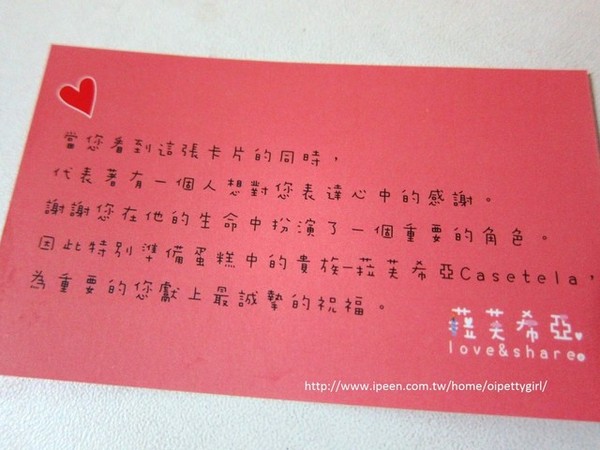 當您看到這張卡片的同時,
代表著有一個人想對您表達心中的感謝。
謝謝您在他的生命中扮演了一個重要的角色。
因此特別準備蛋糕中的貴族—菈芙希亞Casetela,
為重要的您獻上最誠摯的祝福。
菈芙希亞
love&share
http://www.ipeen.com.tw/home/oipettygirl/